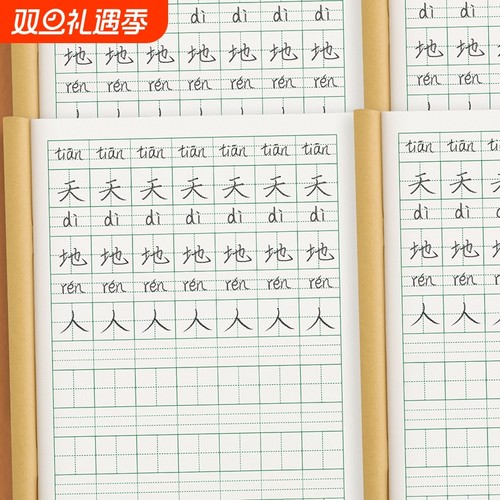 双旦礼遇季
dì dì dì dì
地 地 地 地 地 地 地
rén rén rén rén rén rén rén
dì dì
地 地
rén rén
tiān tiān tiān tiān tiān tiān tiān
天 天 天 天 天 天 天
dì dì dì dì dì dì dì
地 地 地 地 地 地 地
rén rén rén rén rén rén rén
人 人 人 人 人 人 人
tiān tiān
天 天 天
dì dì
地 地 地
rén rén
人 人 人